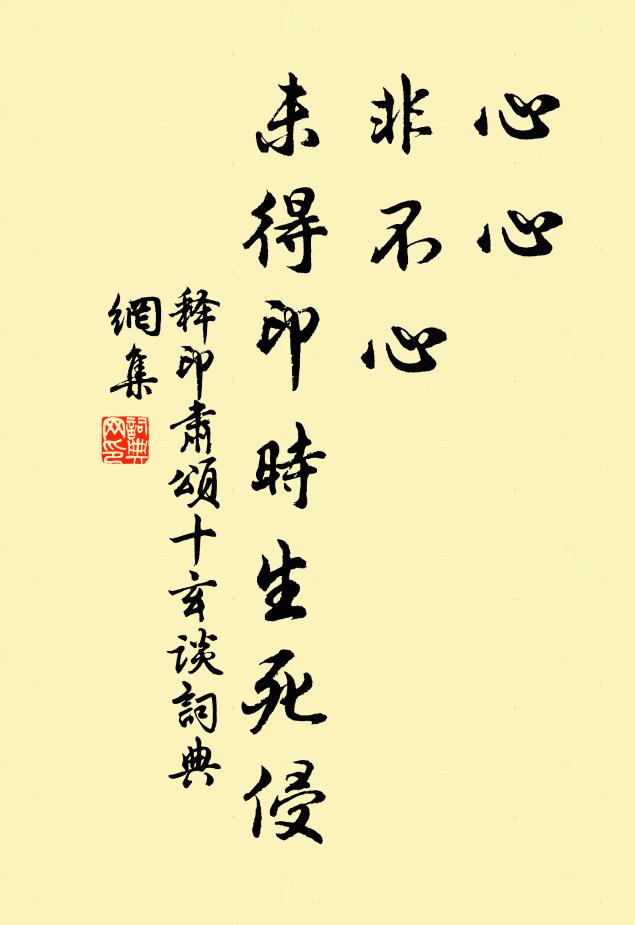 心心
非不心
未得印時生死侵
释印肃頌十玄谈詞典
網集
詞典
网印